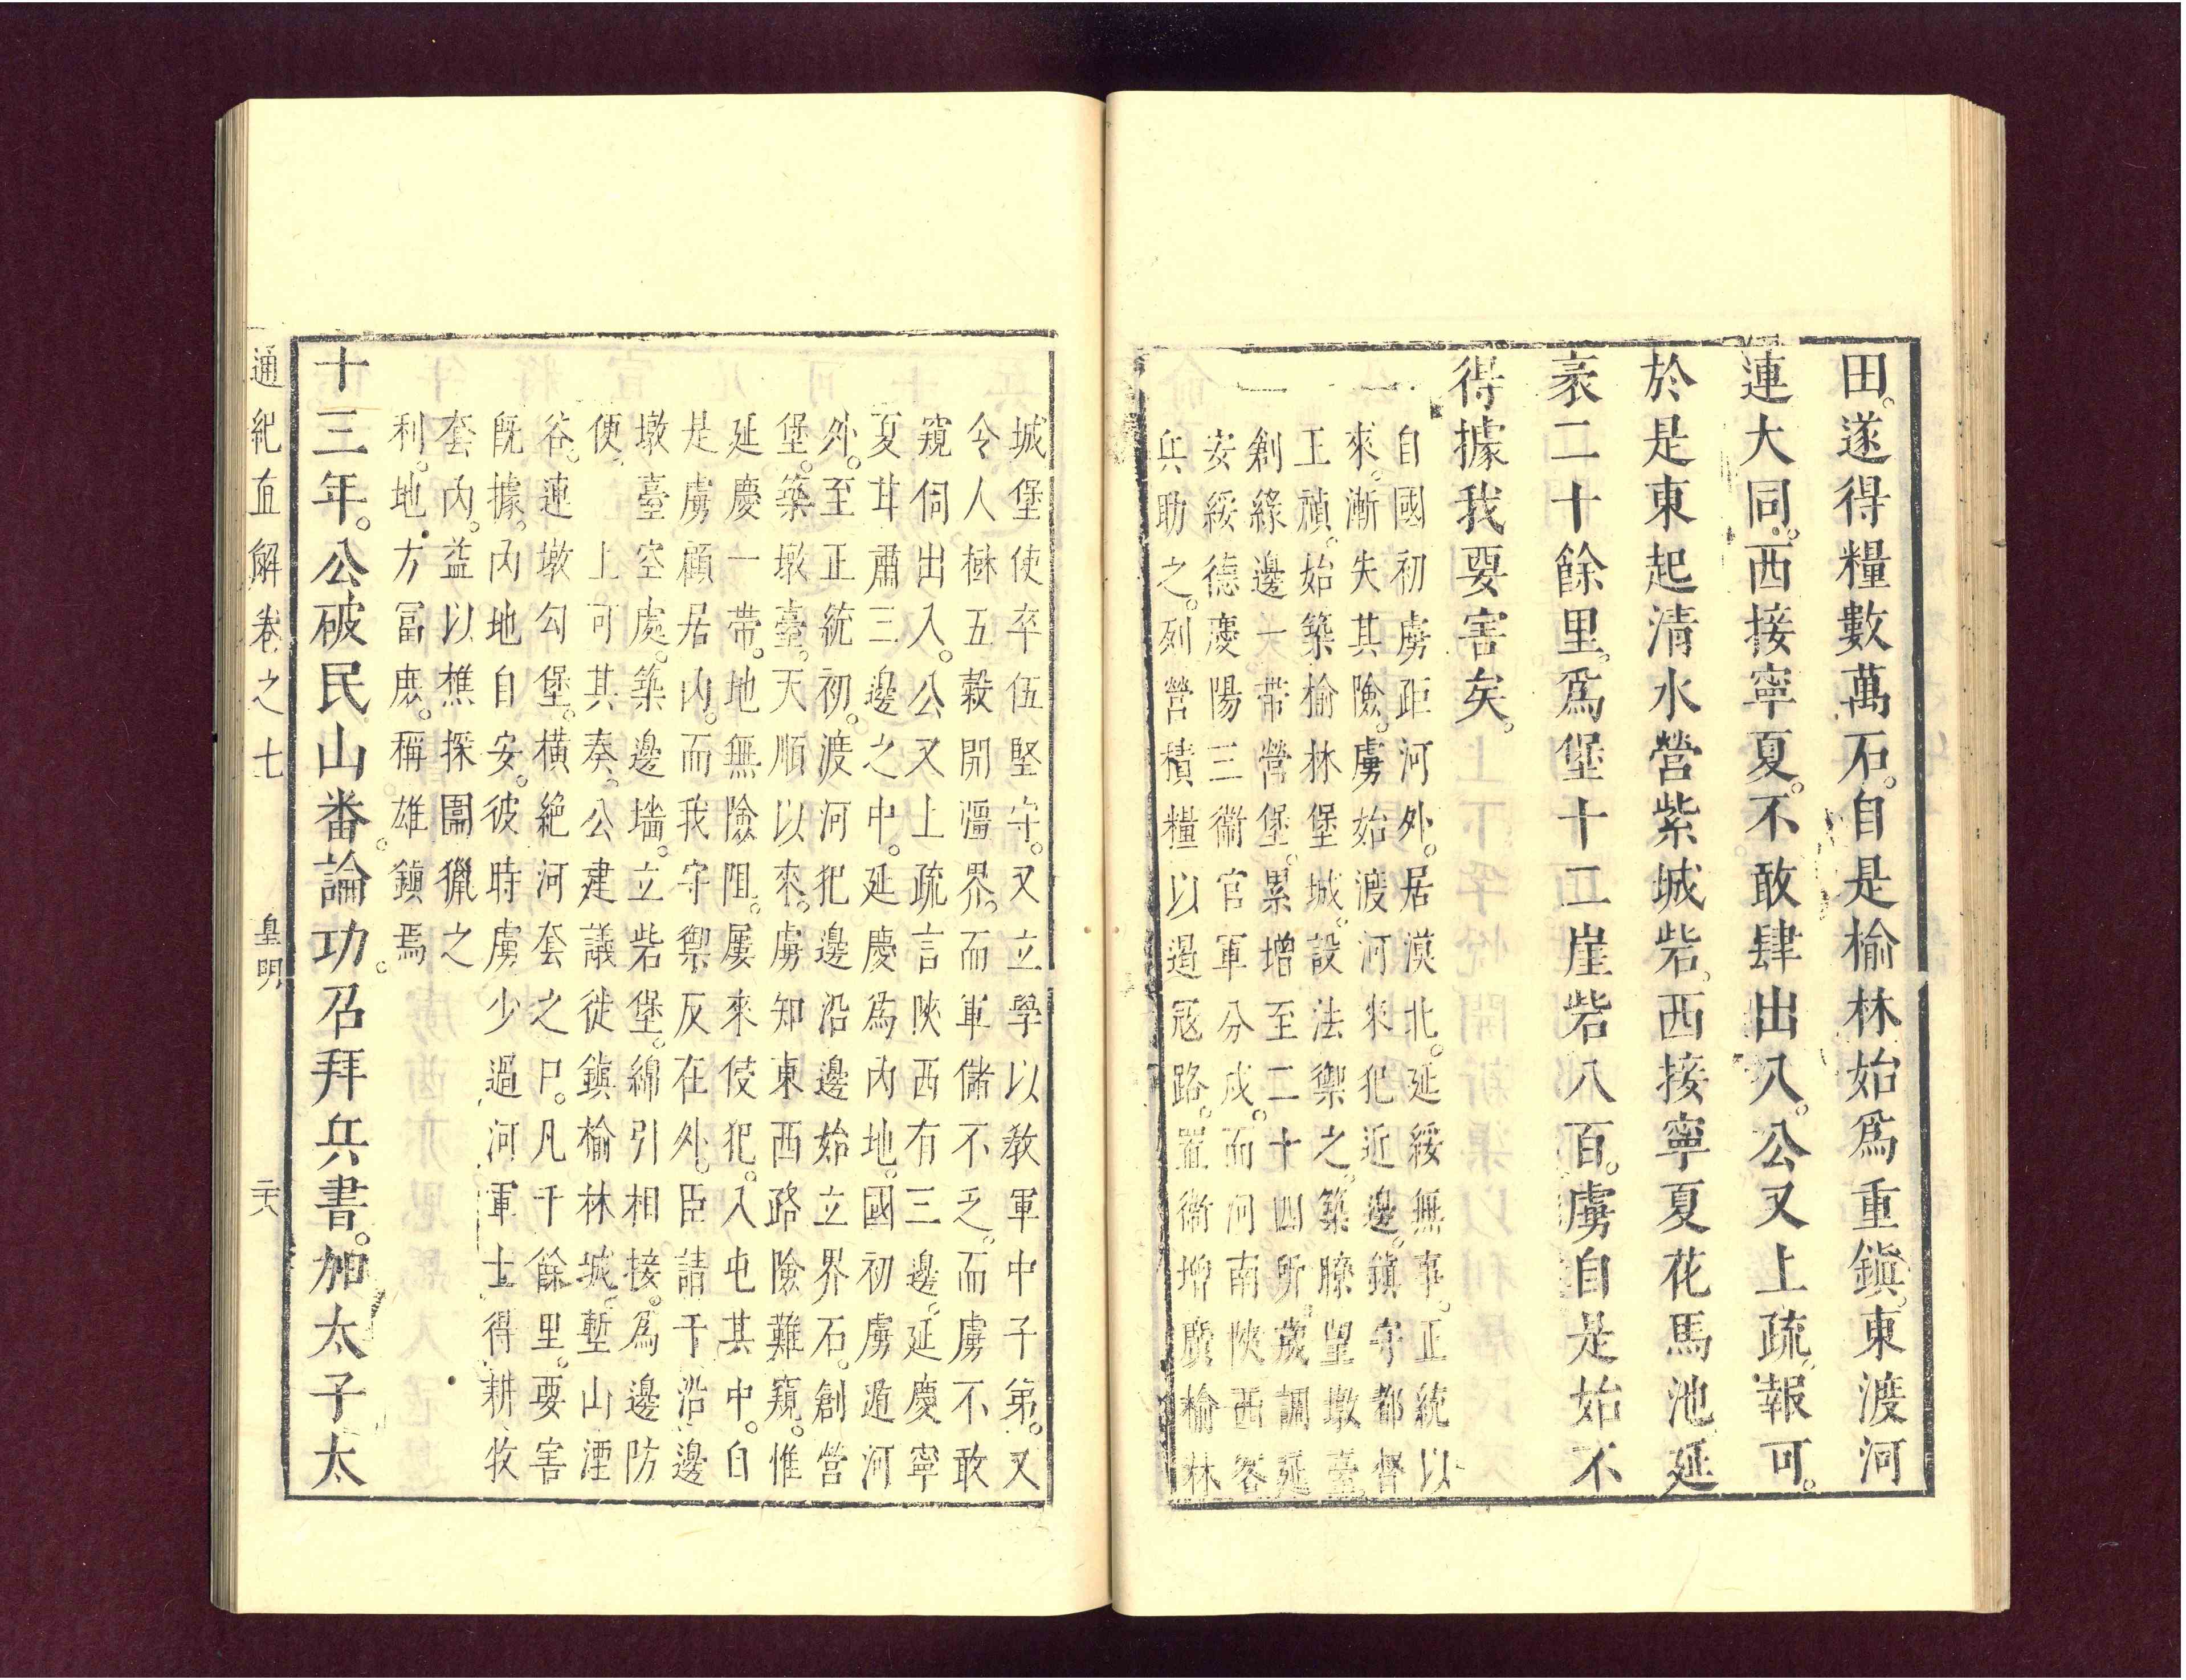 田。遂得糧數萬石。自是榆林始爲重鎭。東渡河
連大同。西接寧夏。不敢肆出入。公又上疏。報可。
於是東起清水營紫城砦。西接寧夏花馬池延
袤二十餘里。爲堡十二崖砦八百。虜自是始不
得據我要害矣。
自國初虜距河外。居漠北。延綏無事。正統以
來。漸失其險。虜始渡河來犯近邊。鎮守都督
王禎。始築榆林堡城。設法禦之。築瞭望墩臺。
創緣邊一帶營堡。累增至二十四所。歲調延
安綏德慶陽三衞官軍分戍。而河南陝西客
兵助之。列營積糧以遏冦路。置衞增廣榆林
城堡使卒伍堅守。又立學以教軍中子第。又
令人樹五穀開疆界。而軍儲不乏。而虜不敢
窺伺出入。公又上疏言陝西有三邊。延慶寧
夏甘肅三邊之中。延慶爲內地。國初虜遁河
外。至正統初。渡河犯邊沿邊始立界石。創營
堡。築墩臺。天順以來。虜知東西路險難窺。惟
延慶一帶。地無險阻。屢來侵犯。入屯其中。自
是虜顧居內。而我守禦反在外。臣請于沿邊
墩臺空處。築邊墻。立砦堡。綿引相接。爲邊防
便。上可其奏。公建議徙鎮榆林城。塹山湮
谷。連墩勾堡。橫絕河套之口。凡千餘里。要害
旣據。內地自安。彼時虜少過河軍士得耕牧
套內。益以樵探圍獵之
利。地方冨庶。稱雄鎮焉
十三年。公破民山番。論功。召拜兵書。加太子太
通紀直解卷之七 皇明 二十六